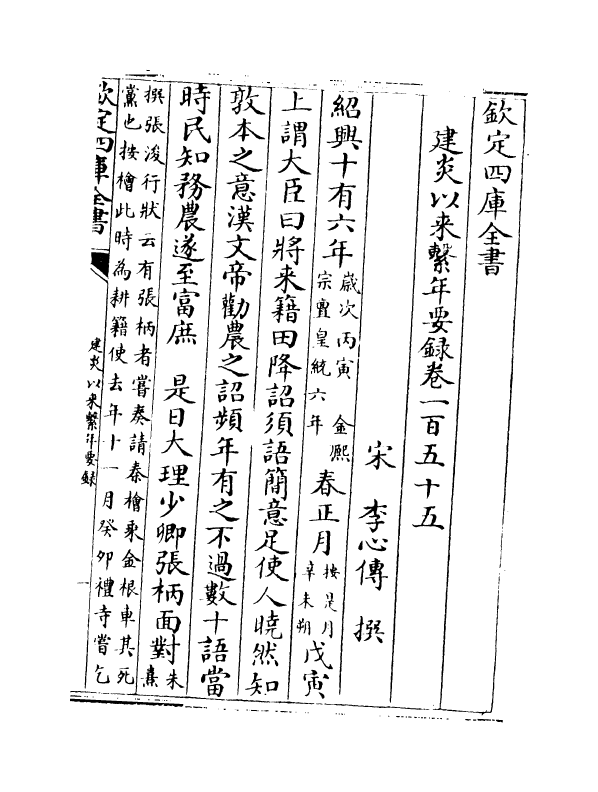 欽定四庫全書
建炎以来繫年要錄卷一百五十五
宋 李心傳 撰
紹興十有六年歲次丙寅 金熙宗亶皇統六年春正月按是月辛未朔戊寅
上謂大臣曰將来籍田降詔須語簡意足使人曉然知
敦本之意漢文帝勸農之詔頻年有之不過數十語當
時民知務農遂至富庶 是日大理少卿張柄面對朱熹
撰張浚行狀云有張柄者嘗奏請秦檜乘金根車其死
黨也按檜此時為耕籍使去年十一月癸卯禮寺嘗乞
欽定四庫全書
建炎以来繫年要錄
一